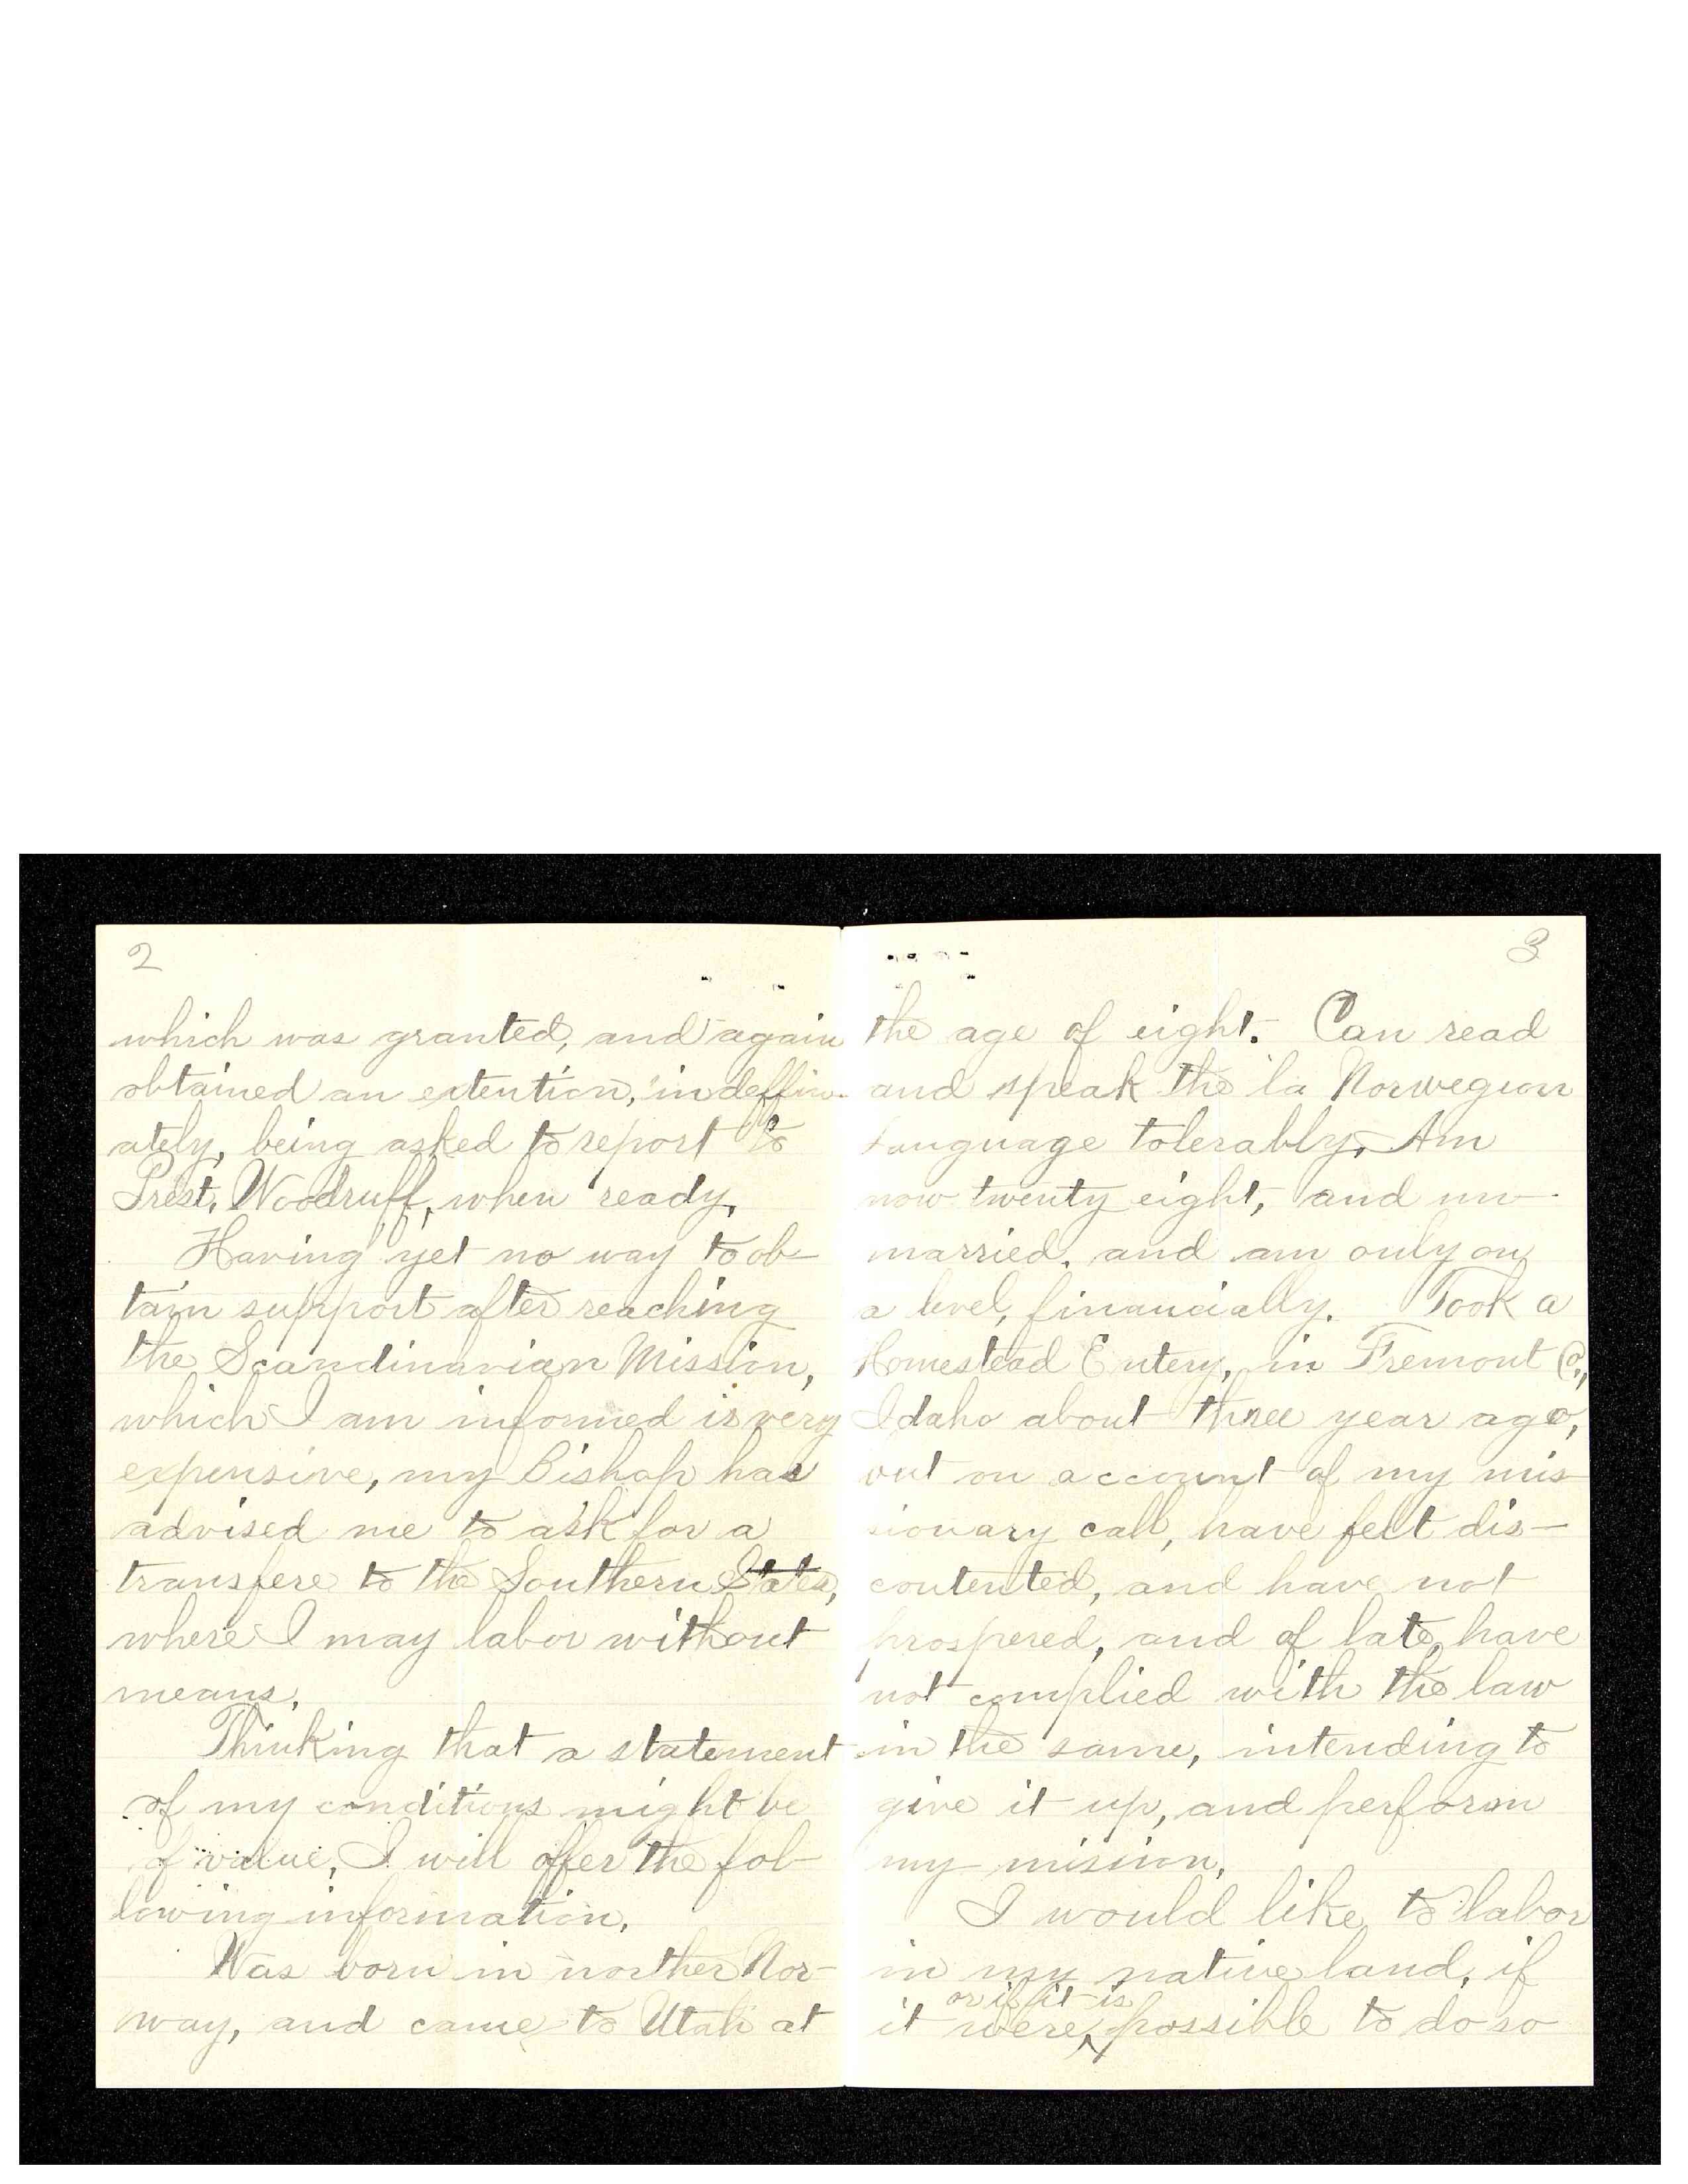 2
which was granted, and again
obtained an extention, indeffin-
ately, being asked to report to
Prest. Woodruff, when ready.
Having yet no way to ob-
tain support after reaching
the Scandinavian Mission,
which I am informed is very
expensive, my Bishop has
advised me to ask for a
transfere to the Southern States,
where I may labor without
means.
Thinking that a statement
of my conditions might be
of value, I will offer the fol-
lowing information.
Was born in norther Nor-
way, and came to Utah at
3
the age of eight. Can read
and speak the la Norwegian
Language tolerably. Am
now twenty eight, and un-
married, and am only on
a level, financially. Took a
Homestead Entery, in Fremont Co.,
Idaho about three year ago,
but on account of my mis-
sionary call, have felt dis-
contented, and have not
prospered, and of late, have
not complied with the law
in the same, intending to
give it up, and perform
my mision.
I would like to labor
in my native land, if
or if it is
it were, possible to do so